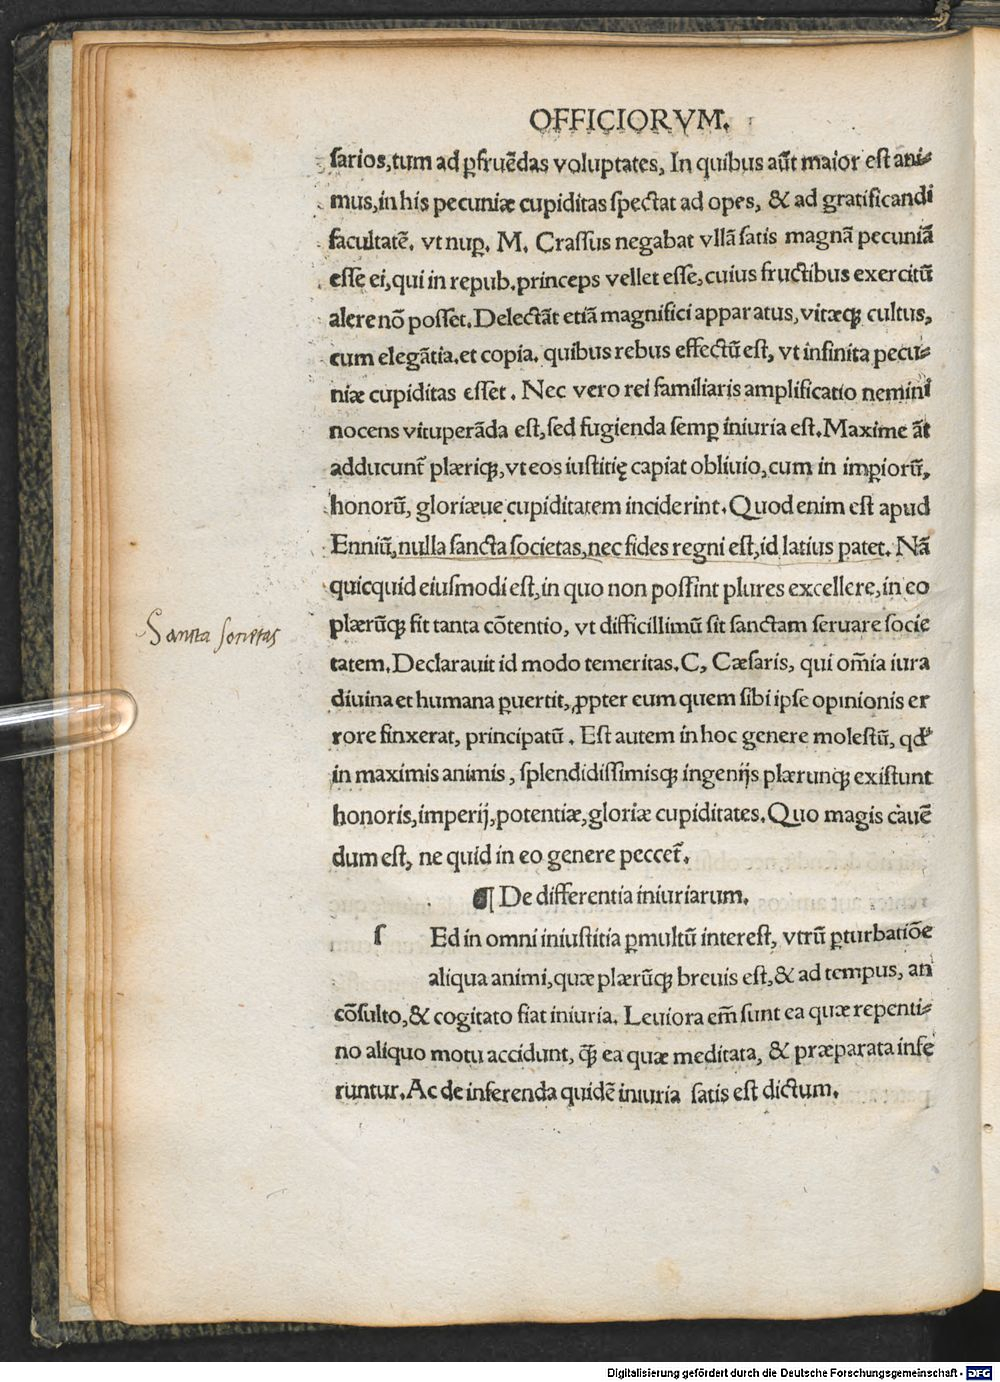 OFFICIORVM.
sarios, tum ad ꝑfruēdas voluptates, In quibus aūt maior est ani⸗
mus, in his pecuniæ cupiditas spectat ad opes, & ad gratificandi
facultatē. vt nuꝑ. M. Crassus negabat vllā satis magnā pecuniā
esse ei, qui in repub. princeps vellet esse, cuius fructibus exercitū
alere nō posset. Delectāt etiā magnifici apparatus, vitæqꝫ cultus,
cum elegātia. et copia. quibus rebus effectū est, vt infinita pecu⸗
niæ cupiditas esset. Nec vero rei familiaris amplificatio nemini
nocens vituperāda est, sed fugienda semꝑ iniuria est. Maxime āt
adducunt̄ plæriqꝫ, vt eos iustitię capiat obliuio, cum in imꝑiorū,
honorū, gloriæue cupiditatem inciderint. Quod enim est apud
Enniū, nulla sancta societas, nec fides regni est, id latius patet. Nā
quicquid eiusmodi est, in quo non possint plures excellere, in eo
plærūqꝫ fit tanta cōtentio, vt difficillimū sit sanctam seruare socie
tatem. Declarauit id modo temeritas. C, Cæsaris, qui om̄ia iura
diuina et humana ꝑuertit, ꝓpter eum quem sibi ipse opinionis er
rore finxerat, principatū. Est autem in hoc genere molestū, qđ
in maximis animis, splendidissimisqꝫ ingenijs plærunqꝫ existunt
honoris, imperij, potentiæ, gloriæ cupiditates. Quo magis cauē
dum est, ne quid in eo genere peccet̄.
¶ De differentia iniuriarum.
s Ed in omni iniustitia ꝑmultū interest, vtrū ꝑturbatiōe
aliqua animi, quæ plærūqꝫ breuis est, & ad tempus, an
cōsulto, & cogitato fiat iniuria. Leuiora em̄ sunt ea quæ repenti⸗
no aliquo motu accidunt, qꝫ̄ ea quæ meditata, & præparata infe
runtur. Ac de inferenda quidē iniuria satis est dictum.
Sancta societas
Digitalisierung gefördert durch die Deutsche Forschungsgemeinschaft - DFG